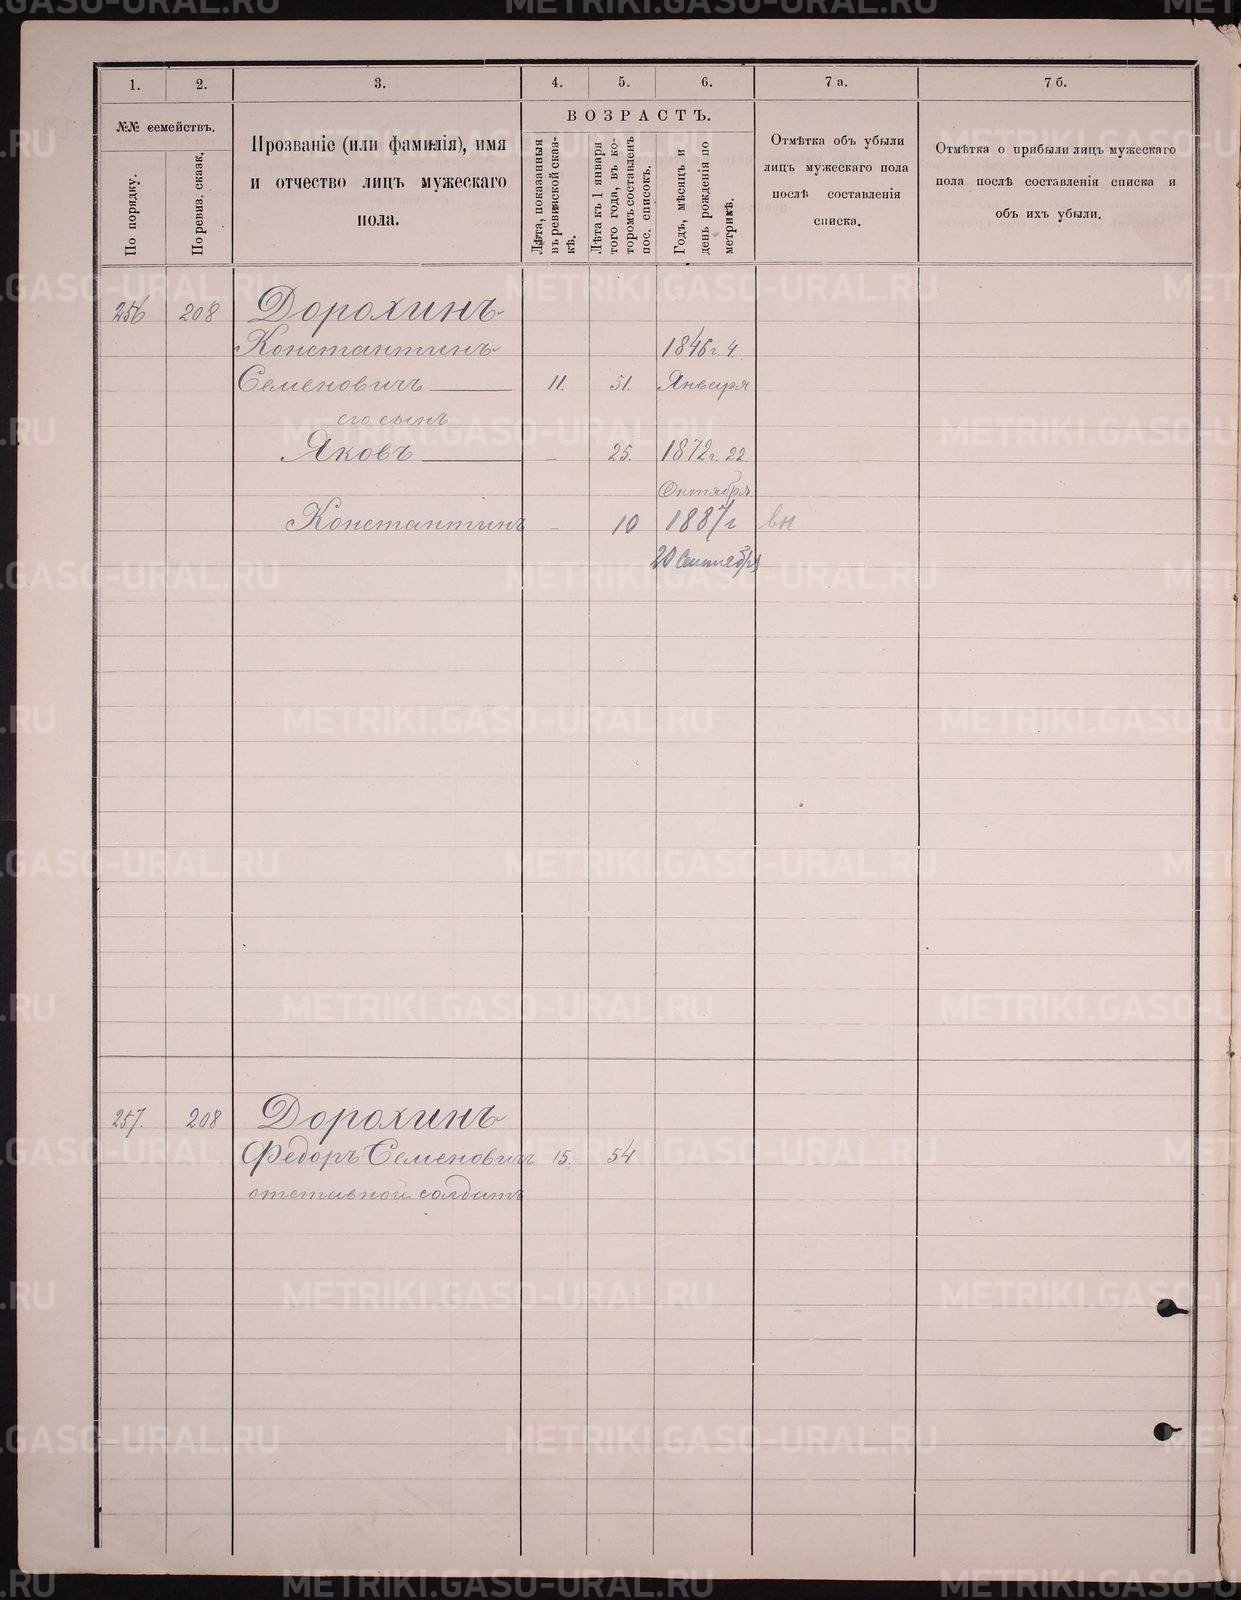 1. 2. 3. 4. 5. 6. 7 а. 7 б.
№№ семействъ.
По порядку.
По ревиз. сказк.
Прозваніе (или фамилія), имя
и отчество лицъ мужескаго
пола.
ВОЗРАСТЪ.
Лѣта, показанныя
въ ревизской сказ-
кѣ.
Лѣта къ 1 января
того года, въ ко-
торомъ составленъ
пос. списокъ.
Годъ, мѣсяцъ и
день рожденія по
метрикѣ.
Отмѣтка объ убыли
лицъ мужескаго пола
послѣ составленія
списка.
Отмѣтка о прибыли лицъ мужескаго
пола послѣ составленія списка и
объ ихъ убыли.
256 208 Дорохинъ
Константинъ 1846 г. 4
Семеновичъ 11. 51. Января
его сынъ
Яковъ - 25. 1872 г. 22
Октября
Константинъ - 10 1887 г вн
20 Сентября
257. 208 Дорохинъ
Федоръ Семеновичъ 15. 54
отставной солдатъ
METRIKI.GASO-URAL.RU